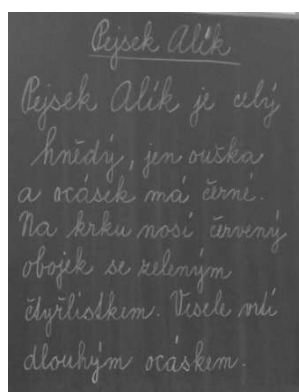 Pejsek Alík
Pejsek Alík je celý
hnědý, jen ouška
a ocásek má černé.
Na krku nosí červený
obojek se zeleným
čtyřlístkem. Vesele vrtí
dlouhým ocáskem.